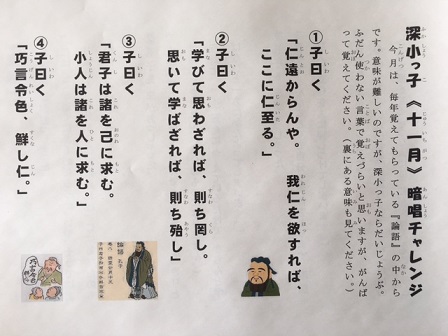 深小っ子《十一月》暗唱チャレンジ
今月は、毎年覚えてもらっている『論語』の中から
です。意味が難しいのですが、深小っ子ならだいじょうぶ。
ふだん使わない言葉で覚えづらいと思いますが、がんば
って覚えてください。（裏にある意味も見てください。）
①子曰く
「仁遠からんや。　我仁を欲すれば、
ここに仁至る。」
②子曰く
「学びて思わざれば、則ち罔し。
思いて学ばざれば、則ち殆し」
③子曰く
「君子は諸を己に求む。
小人は諸を人に求む。」
④子曰く
「巧言令色、鮮し仁。」
論語 孔子